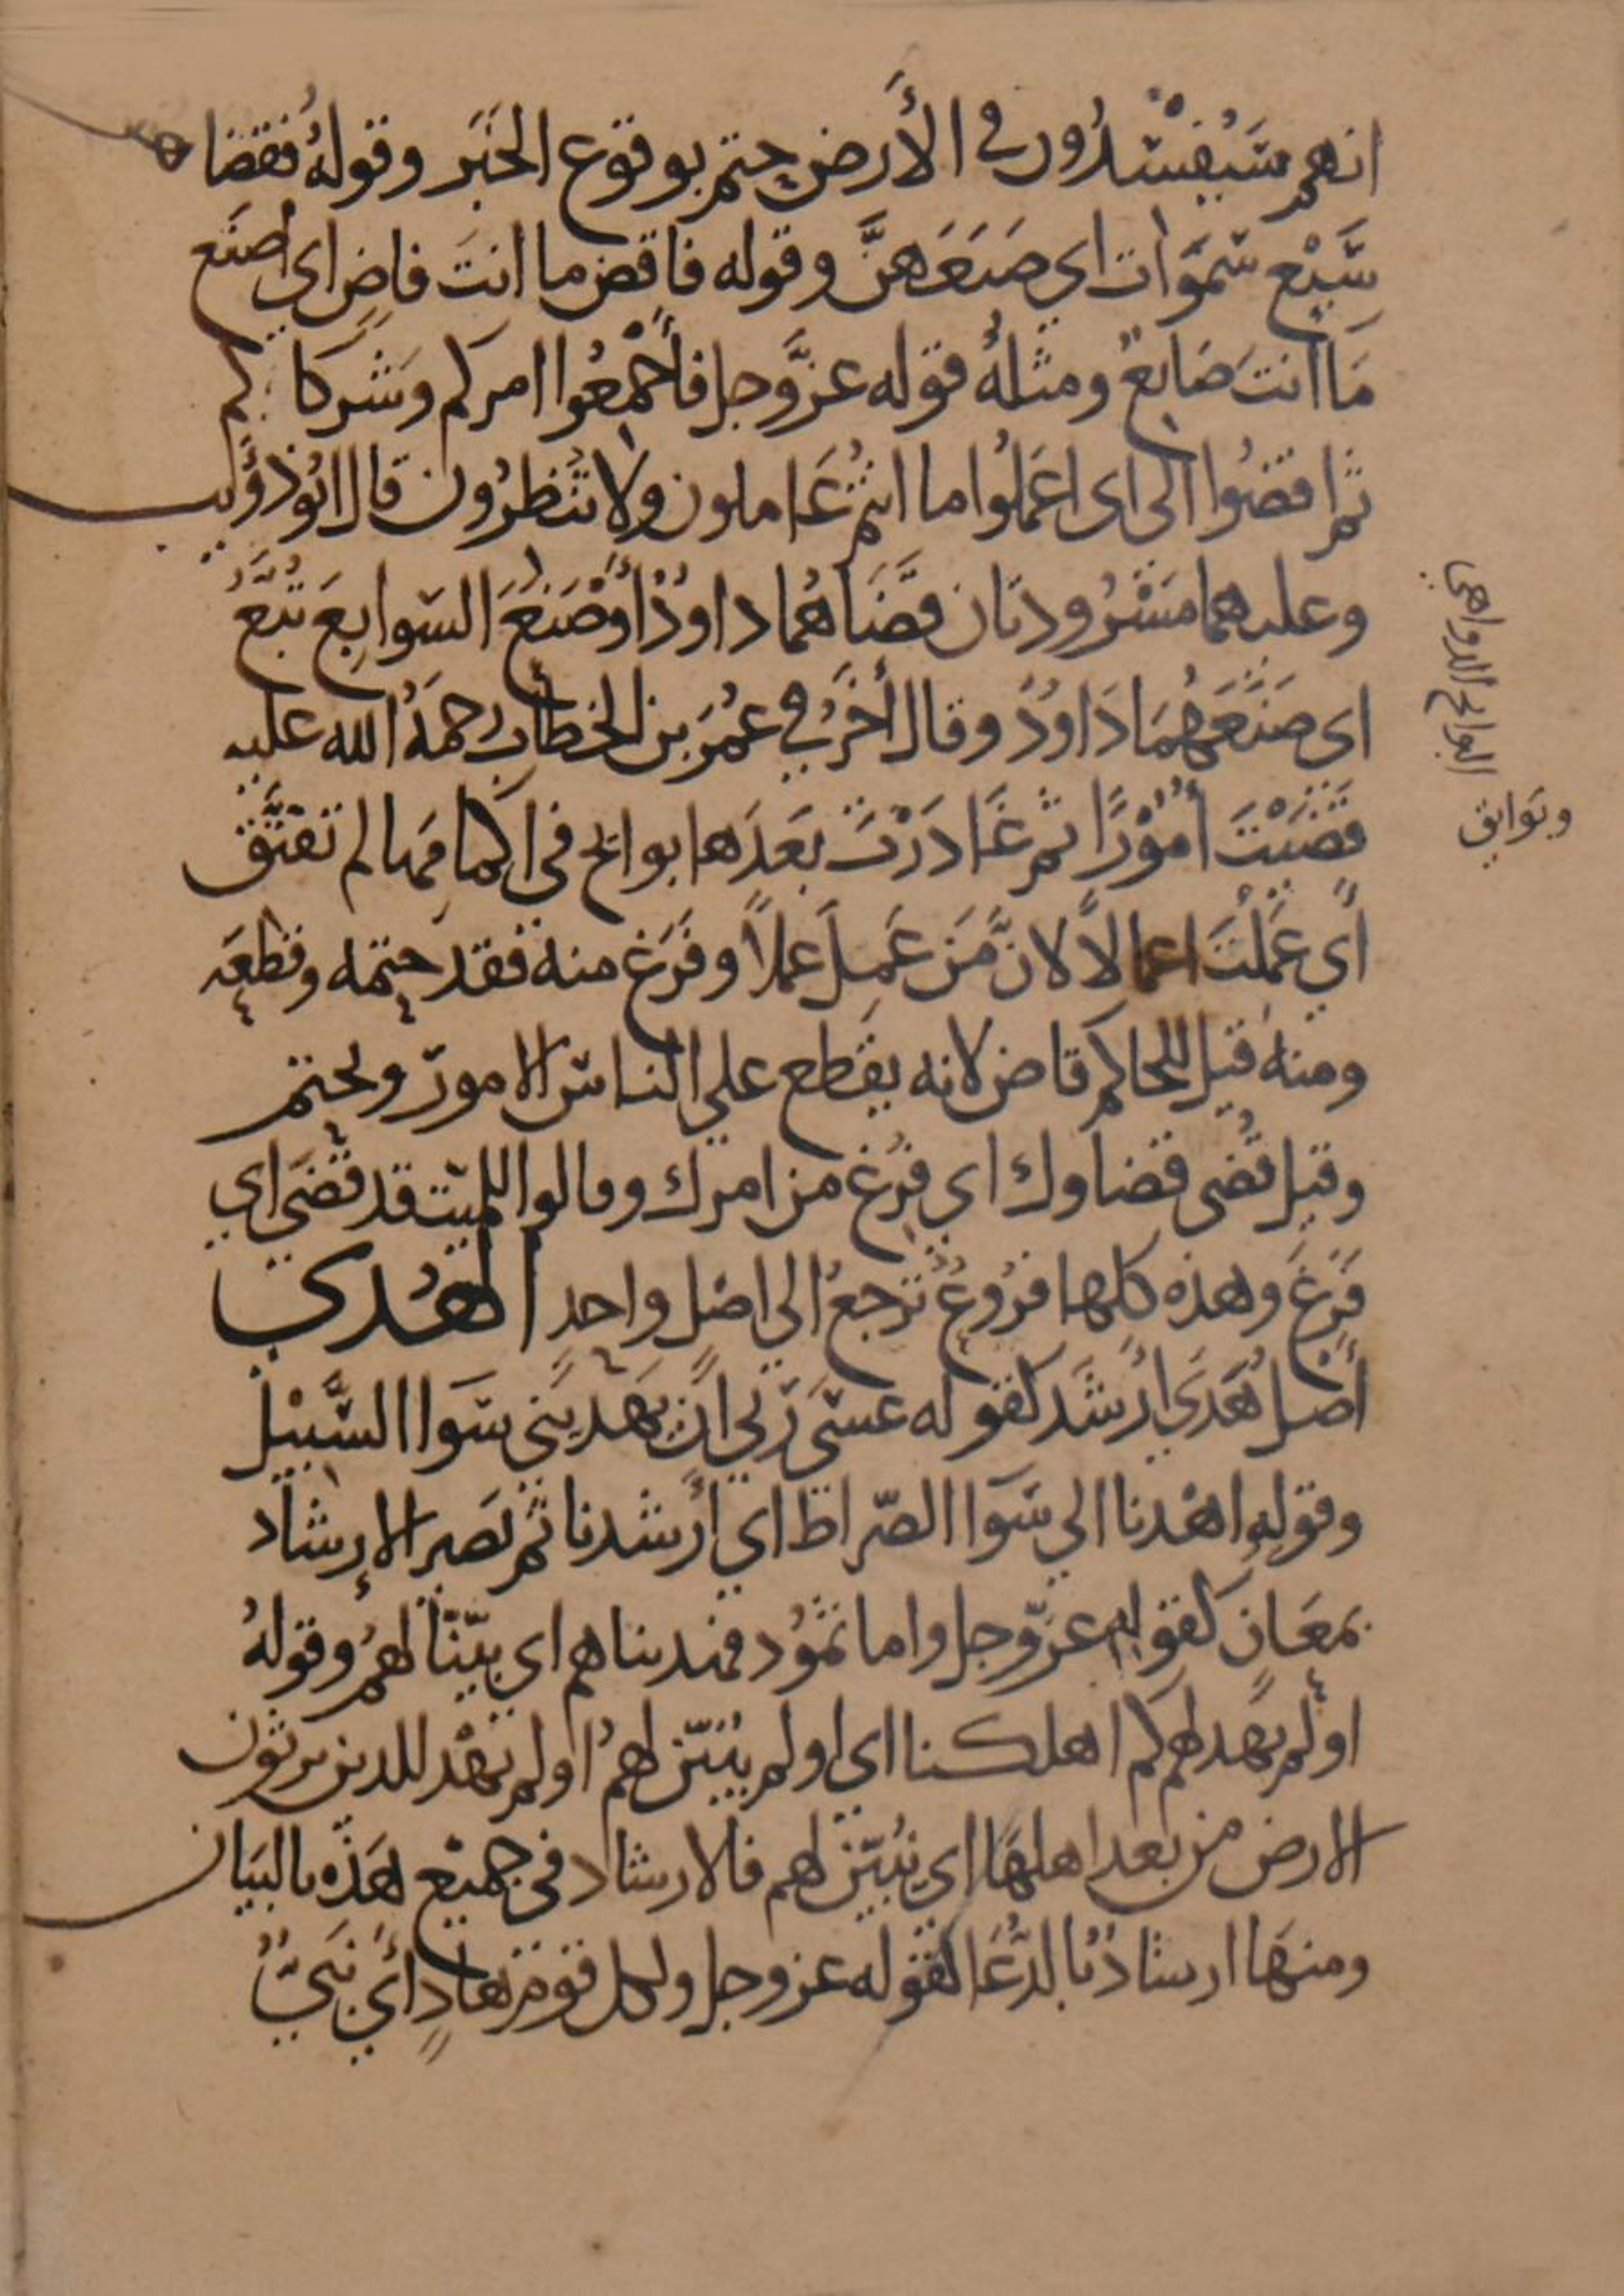 انهم سَيُفْسِدُون في الأَرض حتم بوقوع الخَبَر وقولهُ فقضاهن
سَبْع سَمَوَات اي صَنَعَهنَّ وقوله فاقض ما انتَ قاضٍ اي اصنَع
مَا انتَ صَانِعٌ ومثلهُ قوله عزَّوجل فأَجْمِعُوا امركم وشركاكم
ثم اقضُوا الى اى اعمَلُوا ما انتُم عَاملون ولا تنْظرُون قال ابُو ذؤَيب
وعليهما مَسْرُودتان قَضَاهُما داودُ أوْ صَنَعَ السَوابِغَ تُبَّعُ
اى صَنَعَهُمَا دَاوُدُ وقال أخَرُ في عُمَرَ بن الخطاب رحمَهُ الله عليه
قَضَيْتَ أُمُوْرًا ثم غَادَرْتَ بَعْدَهَا بوائج في اكمامهَا لم تفتَّق
أي عَمِلْتَ اعمالاً لانَّ مَن عَمِلَ عملاً وفَرَغ منه فقد حتمَه وقطعَه
ومنهُ قيل للحاكم قاض لانه يقطع علي الناس الامور ويحتم
وقيل قُضى قضاوك اي فُرِغ من امرك وقالوا للميّت قد قَضَى اي
فَرَغَ وهذه كلها فرُوعٌ ترجعُ الى اصْل واحد الهُدى
أصل هَدَى ارْشَد كقوله عسَى رَبي أن يَهديَني سَوَا السَّبِيْل
وقولهِ اهْدنا الي سَوَا الصّراط اي أرْشدنا ثم يَصير الإرشاد
بمعَانٍ كقوله عزّوجل واما ثمُود فهديناهم اي بيّنّا لهُم وقولهُ
اولَم يَهدِ لهم كم اهلكنا اى اولم يُبَيّن لهمْ اولم يَهْدِ للدين يرثون
الارض من بعد اهلهَا اي يُبَيّن لهم فالارشاد في جميْع هَذه بالبيَان
ومنهَا ارشادٌ بالدُّعَا كقوله عزوجل ولكل قومٍ هَادٍ أي نَبيٌّ
البوائج الدواهي
وبَوايق